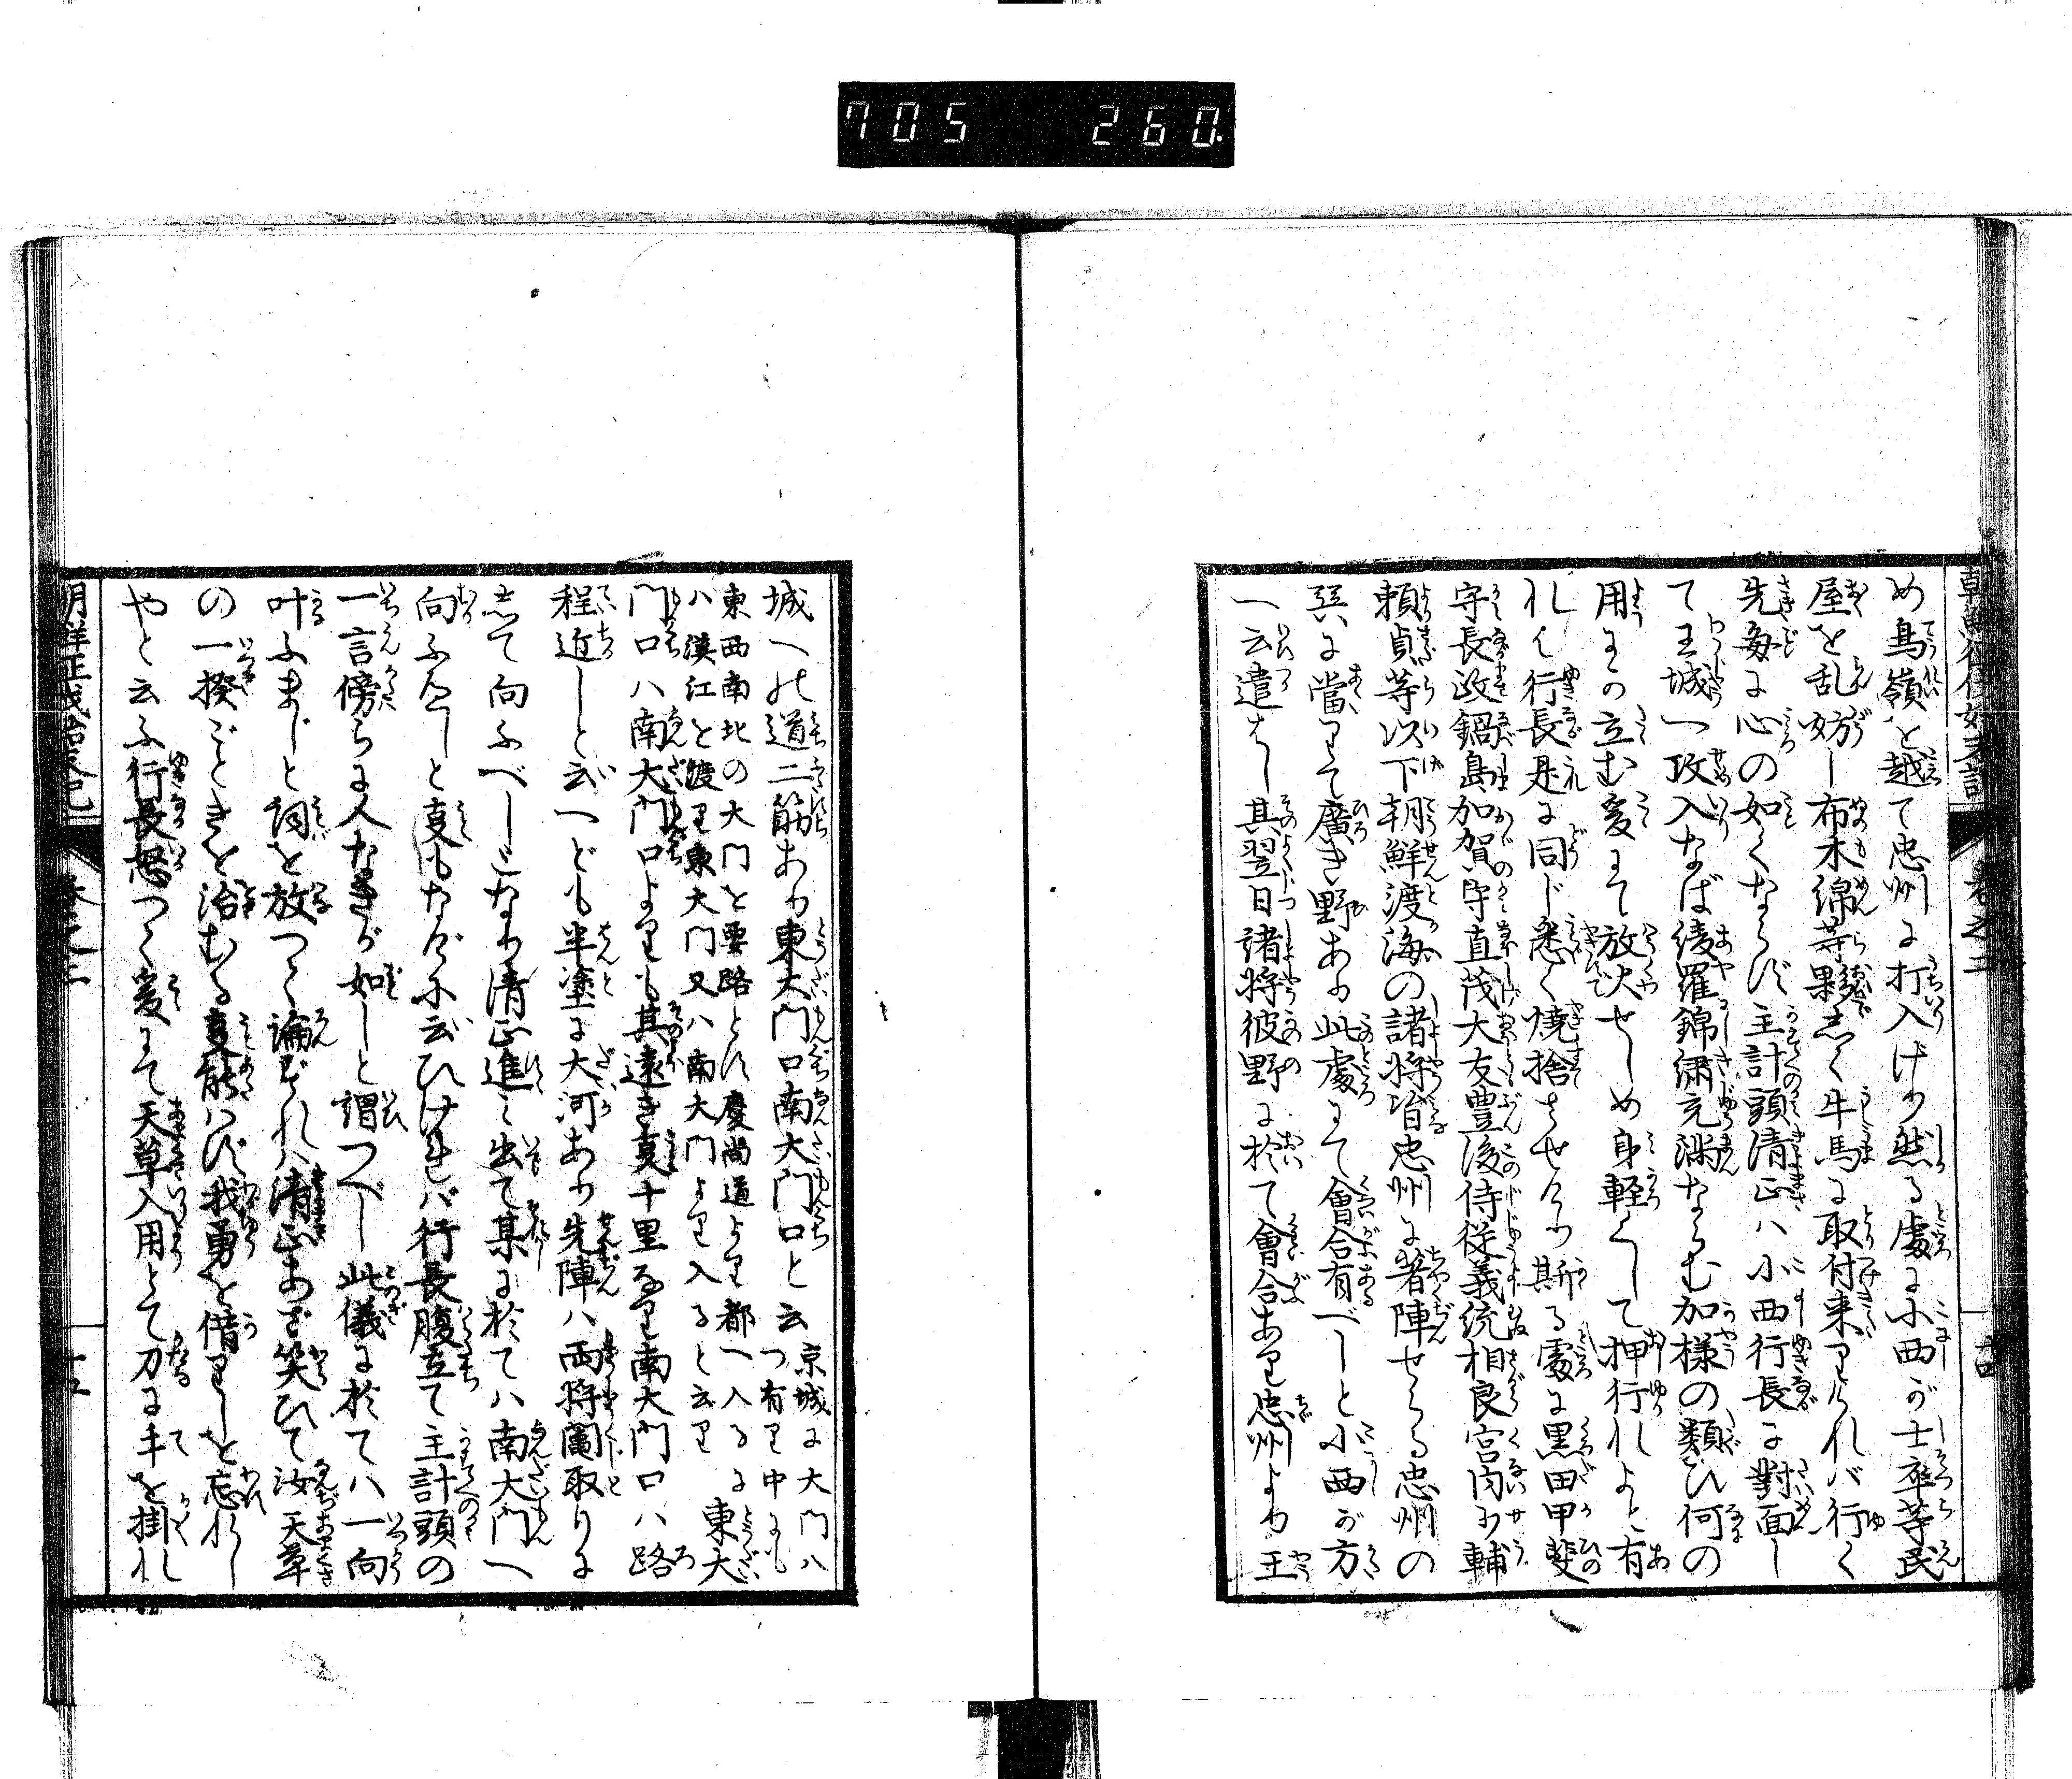 705 260
め鳥嶺を越て忠州に打入けり然る處に小西が士卒等民
屋を乱妨し布木綿等夥しく牛馬に取付来りければ行く
先毎に心の如くならず主計頭清正ハ小西行長に對面し
て王城へ攻入なば綾羅錦繍充満ならむ加様の類ひ何の
用にか立む爰にて放火せしめ身軽くして押行れよと有
れば行長是に同じ悉く焼捨させけり斯る處に黒田甲斐
守長政鍋島加賀守直茂大友豊後侍従義統相良宮内少輔
頼貞等以下朝鮮渡海の諸将皆忠州に著陣せらる忠州の
巽に當りて廣き野あり此處にて會合有べしと小西が方
へ云遣はし其翌日諸将彼野に於て會合あり忠州より王
城への道二筋あり東大門口南大門口と云
京城に大門八つ有り中にも
東西南北の大門を要路とす慶尚道より都へ入るに東大
ハ漢江を渡り東大門又ハ南大門より入ると云り
門口ハ南大門口よりも其遠き叓十里なり南大門口ハ路
程近しと雖へども半塗に大河あり先陣ハ両将鬮取りに
して向ふべしとなり清正進ミ出て某に於てハ南大門へ
向ふべしと叓もなげに云ひければ行長腹立て主計頭の
一言傍らに人なきが如しと謂つべし此儀に於てハ一向
叶ふまじと詞を放つて論ずれハ清正あざ笑ひて汝天草
の一揆ごときを治むる叓能ハず我勇を借りしを忘れし
やと云ふ行長怒つて爰にて天草入用とて刀に手を掛れ